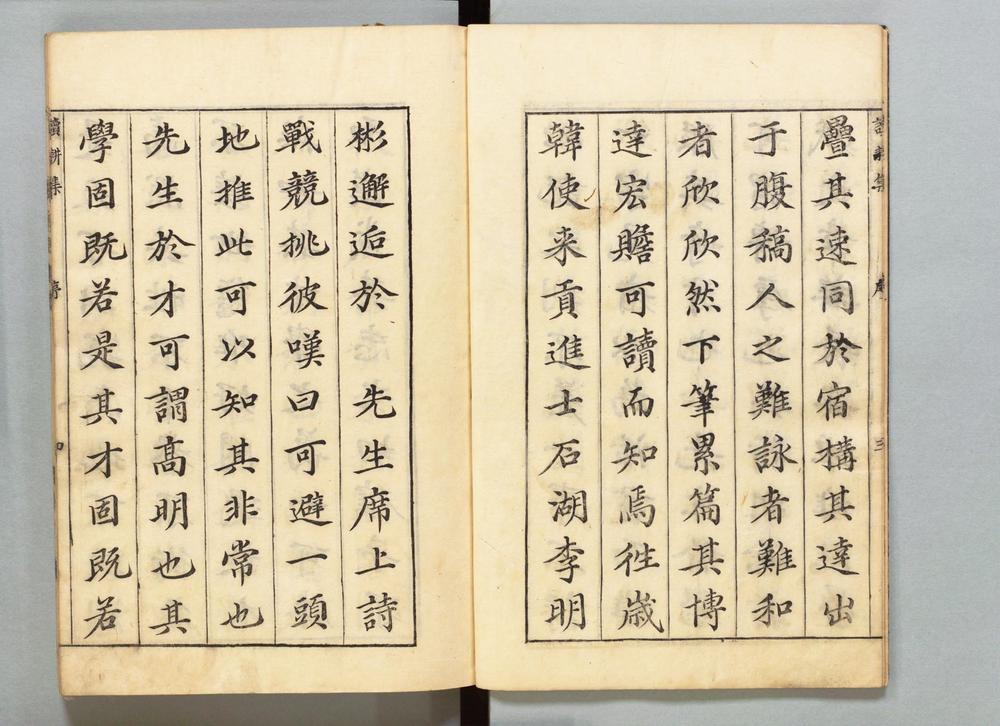 疊其速同於宿構其達出
于腹稿人之難詠者難和
者欣欣然下筆累篇其博
達宏贍可讀而知焉徃歲
韓使来貢進士石湖李明
彬邂逅於　先生席上詩
戰競挑彼嘆曰可避一頭
地推此可以知其非常也
先生於才可謂高明也其
學固既若是其才固既若
讀耕集
序
四